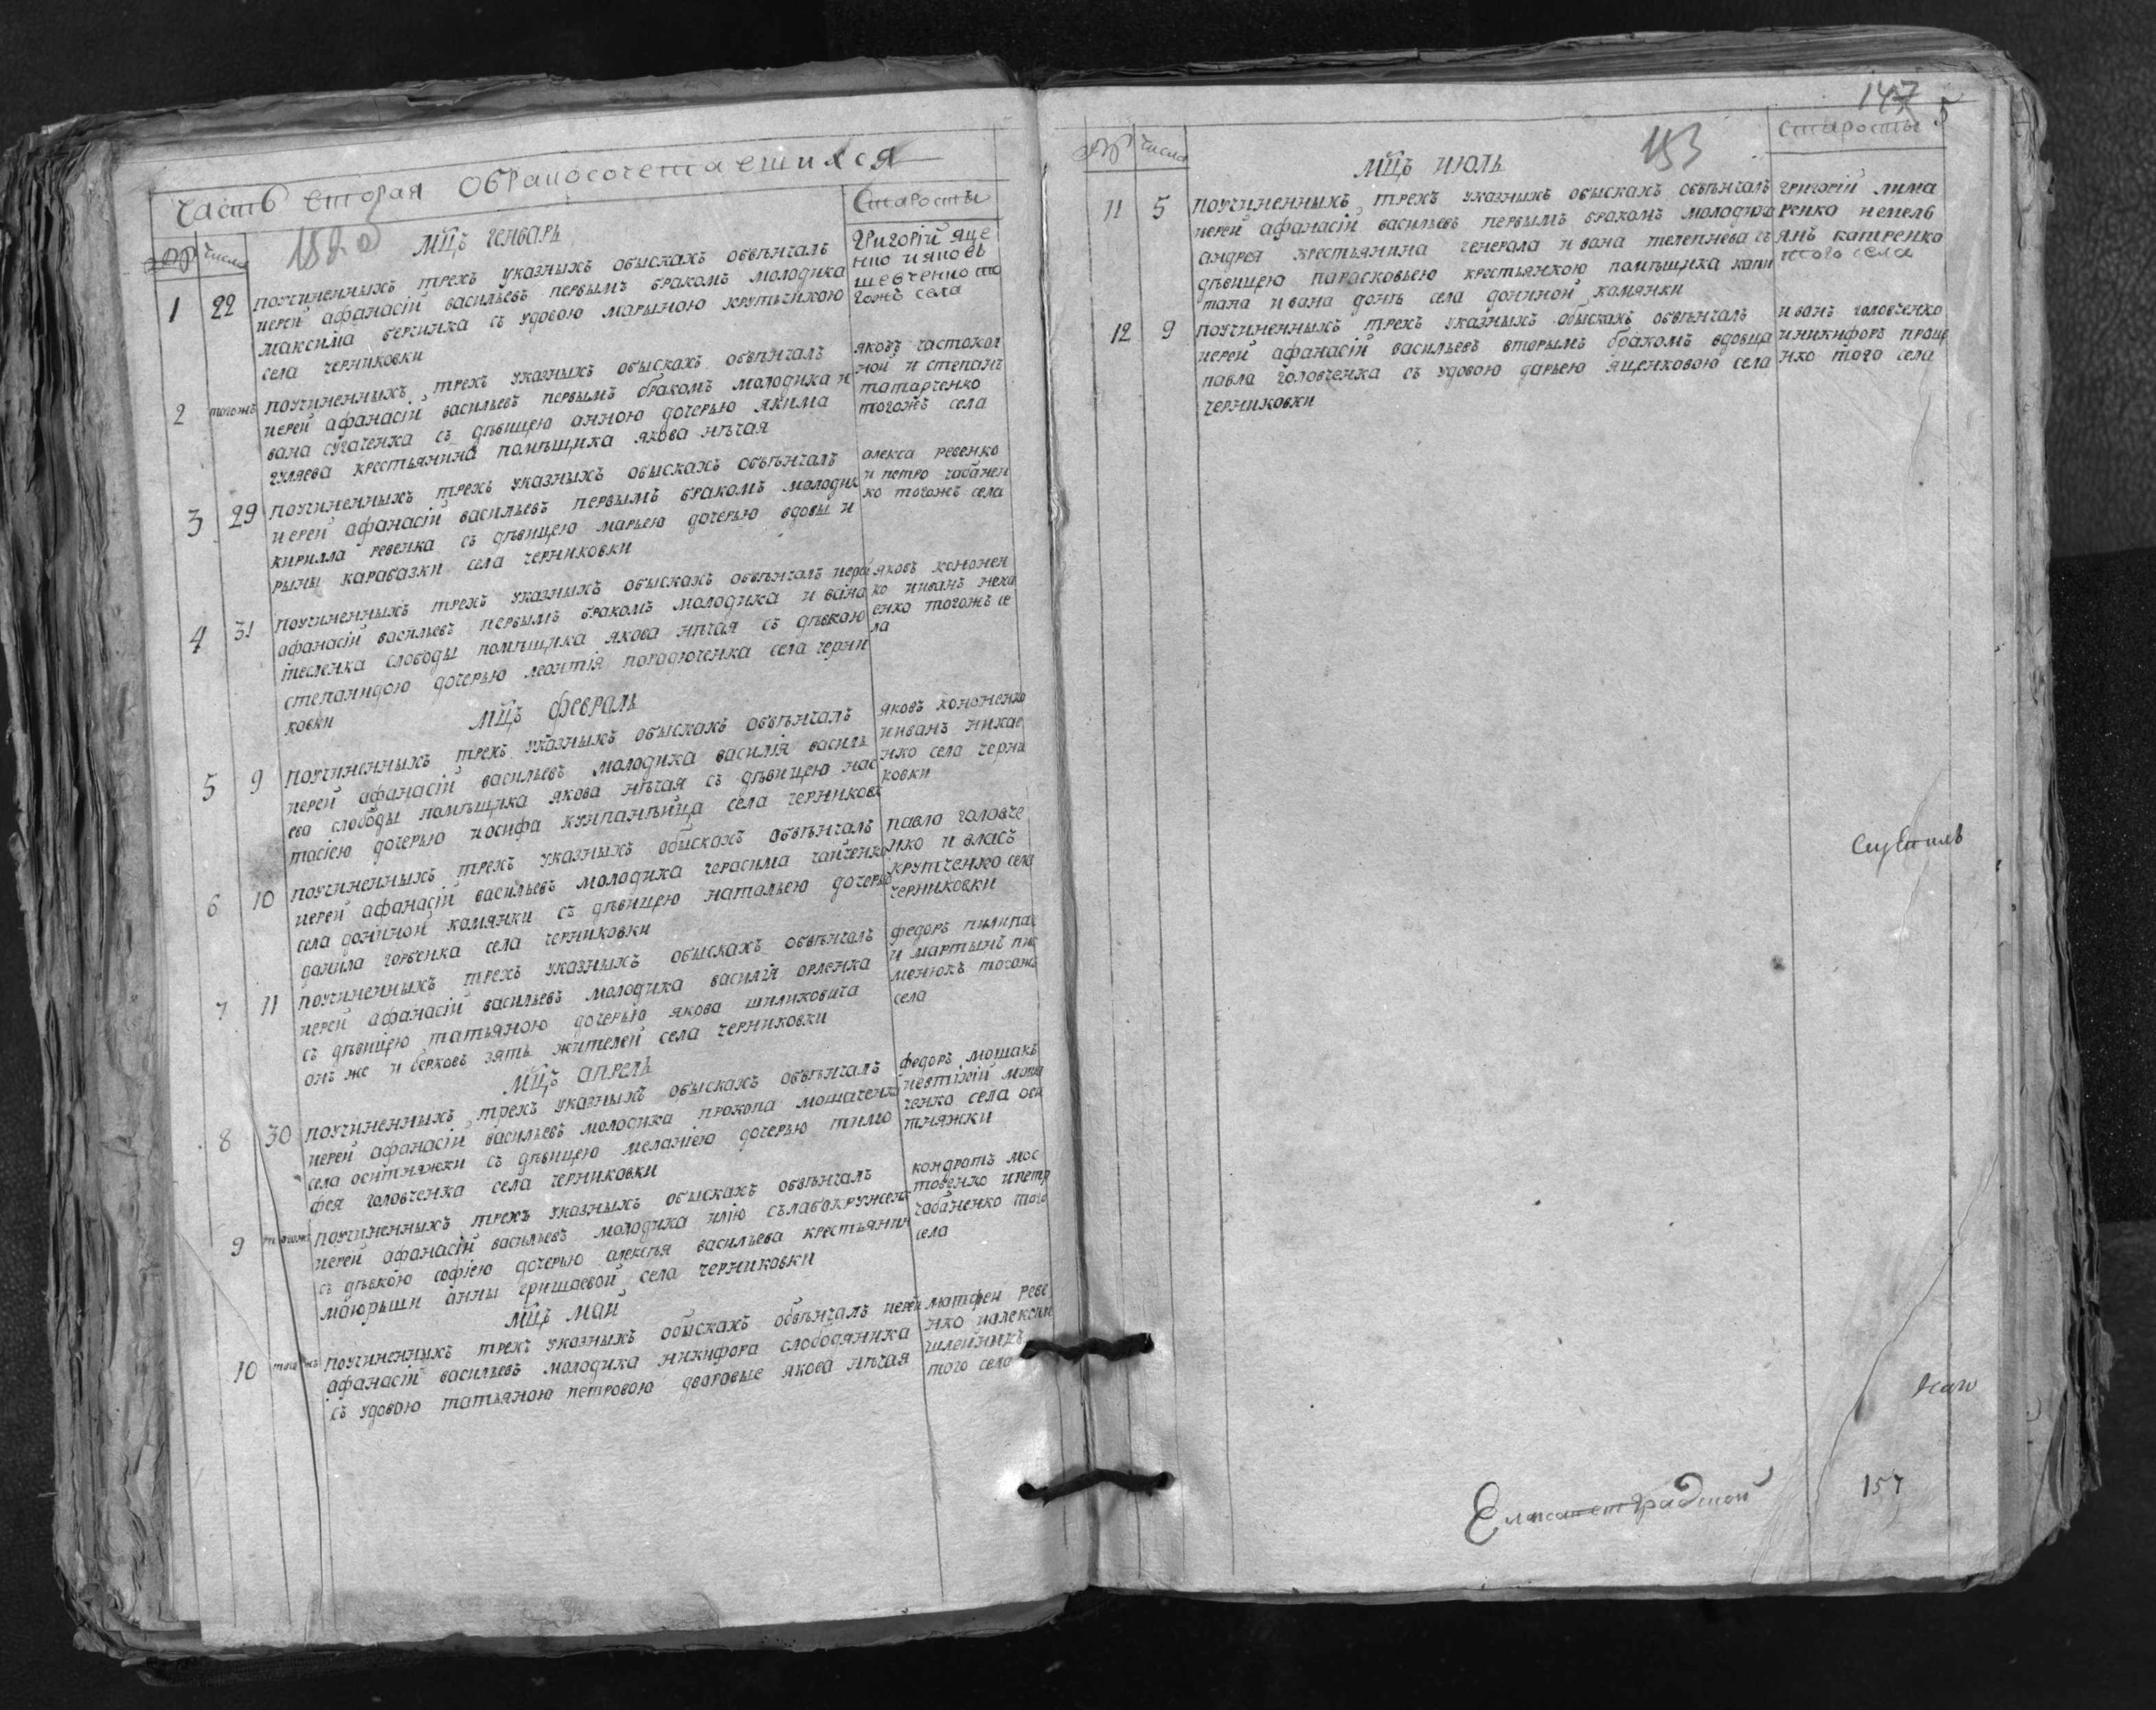 Часть вторая обраносочетаешихся
№ числа
мцъ генварь
Старосты
1 22 поучиненныхъ трехъ указныхъ обыскахъ обвѣнчалъ
иерей афанасій васильевъ первымъ бракомъ молодика
максима
съ удовою марьиною крутьчихою
села черниковки
григорій яще
нко ияковъ
шевченко то
гожъ села
2 тогожъ поучиненныхъ трехъ указныхъ обыскахъ обвѣнчалъ
иерей афанасій васильевъ первымъ бракомъ молодика и
вана сугаченка съ дѣвицею анною дочерью якима
гуляева крестьянина помѣщика якова нѣчая
яковъ частокол
ной и степанъ
татарченко
тогожъ села
3 29 поучиненныхъ трехъ указныхъ обыскахъ обвѣнчалъ
иерей афанасій васильевъ первымъ бракомъ молодик
кирилла ревенка съ дѣвицею марьею дочерью вдовы и
рыны карабазки села черниковки
алекса ревенко
и петро чабанен
ко тогожъ села
4 31 поучиненныхъ трехъ указныхъ обыскахъ обвѣнчалъ иерей
афанасій васильевъ первымъ бракомъ молодика ивана
тесленка слободы помѣщика якова нѣчая съ дѣвкою
степанидою дочерью леонтія погадюченка села черни
ковки
яковъ кононен
ко ииванъ
енко тогожъ се
ла
мцъ февраль
5 9 поучиненныхъ трехъ указныхъ обыскахъ обвѣнчалъ
иерей афанасій васильевъ молодика василія василь
ева слободы помѣщика якова нѣчая съ дѣвицею нас
тасіею дочерью иосифа купанѣйца села черниковк
яковъ кононенко
ииванъ никае
нко села черни
ковки
6 10 поучиненныхъ трехъ указныхъ обыскахъ обвѣнчалъ
иерей афанасій васильевъ молодика герасима чайченка
села дониной камянки съ дѣвицею натальею дочерью
данила горбенка села черниковки
павло головче
нко и власъ
крутченко села
черниковки
7 11 поучиненныхъ трехъ указныхъ обыскахъ обвѣнчалъ
иерей афанасій васильевъ молодика василія орленка
съ дѣвицею татьяною дочерью якова шпилковича
онъ же и берковъ зять жителей села черниковки
федоръ пилипа
и мартынъ пи
менюкъ тогожъ
села
мцъ апрель
8 30 поучиненныхъ трехъ указныхъ обыскахъ обвѣнчалъ
иерей афанасій васильевъ молодика прокопа мошаченка
села оситняжки съ дѣвицею меланіею дочерью тимо
фея головченка села черниковки
федоръ мошакъ
иевтихій моша
ченко села оси
тняжки
9 тогожъ поучиненныхъ трехъ указныхъ обыскахъ обвѣнчалъ
иерей афанасій васильевъ молодика илію
съ дѣвкою софіею дочерью алексѣя васильева крестьянин
маюрыши анны гришаевой села черниковки
кондратъ мос
товенко ипетр
чабаненко того
села
мцъ май
10 поучиненныхъ трехъ указныхъ обыскахъ обвѣнчалъ иерей
афанасій васильевъ молодика никифора слободяника
съ удовою татьяною петровою дворовые якова нѣчая
матфей реве
нко иалексій
того села
147
5
153
№ числа
мцъ июль
старосты
11 5 поучиненныхъ трехъ указныхъ обыскахъ обвѣнчалъ
иерей афанасій васильевъ первымъ бракомъ молодика
андрея крестьянина генерала ивана телепнева съ
дѣвицею парасковьею крестьянкою помѣщика капи
тана ивана села дониной камянки
григорій лима
ренко иемель
янъ катренко
того села
12 9 поучиненныхъ трехъ указныхъ обыскахъ обвѣнчалъ
иерей афанасій васильевъ вторымъ бракомъ вдовца
павла головченка съ удовою дарьею ященковою села
черниковки
иванъ головченко
иникифоръ
нко того села
157